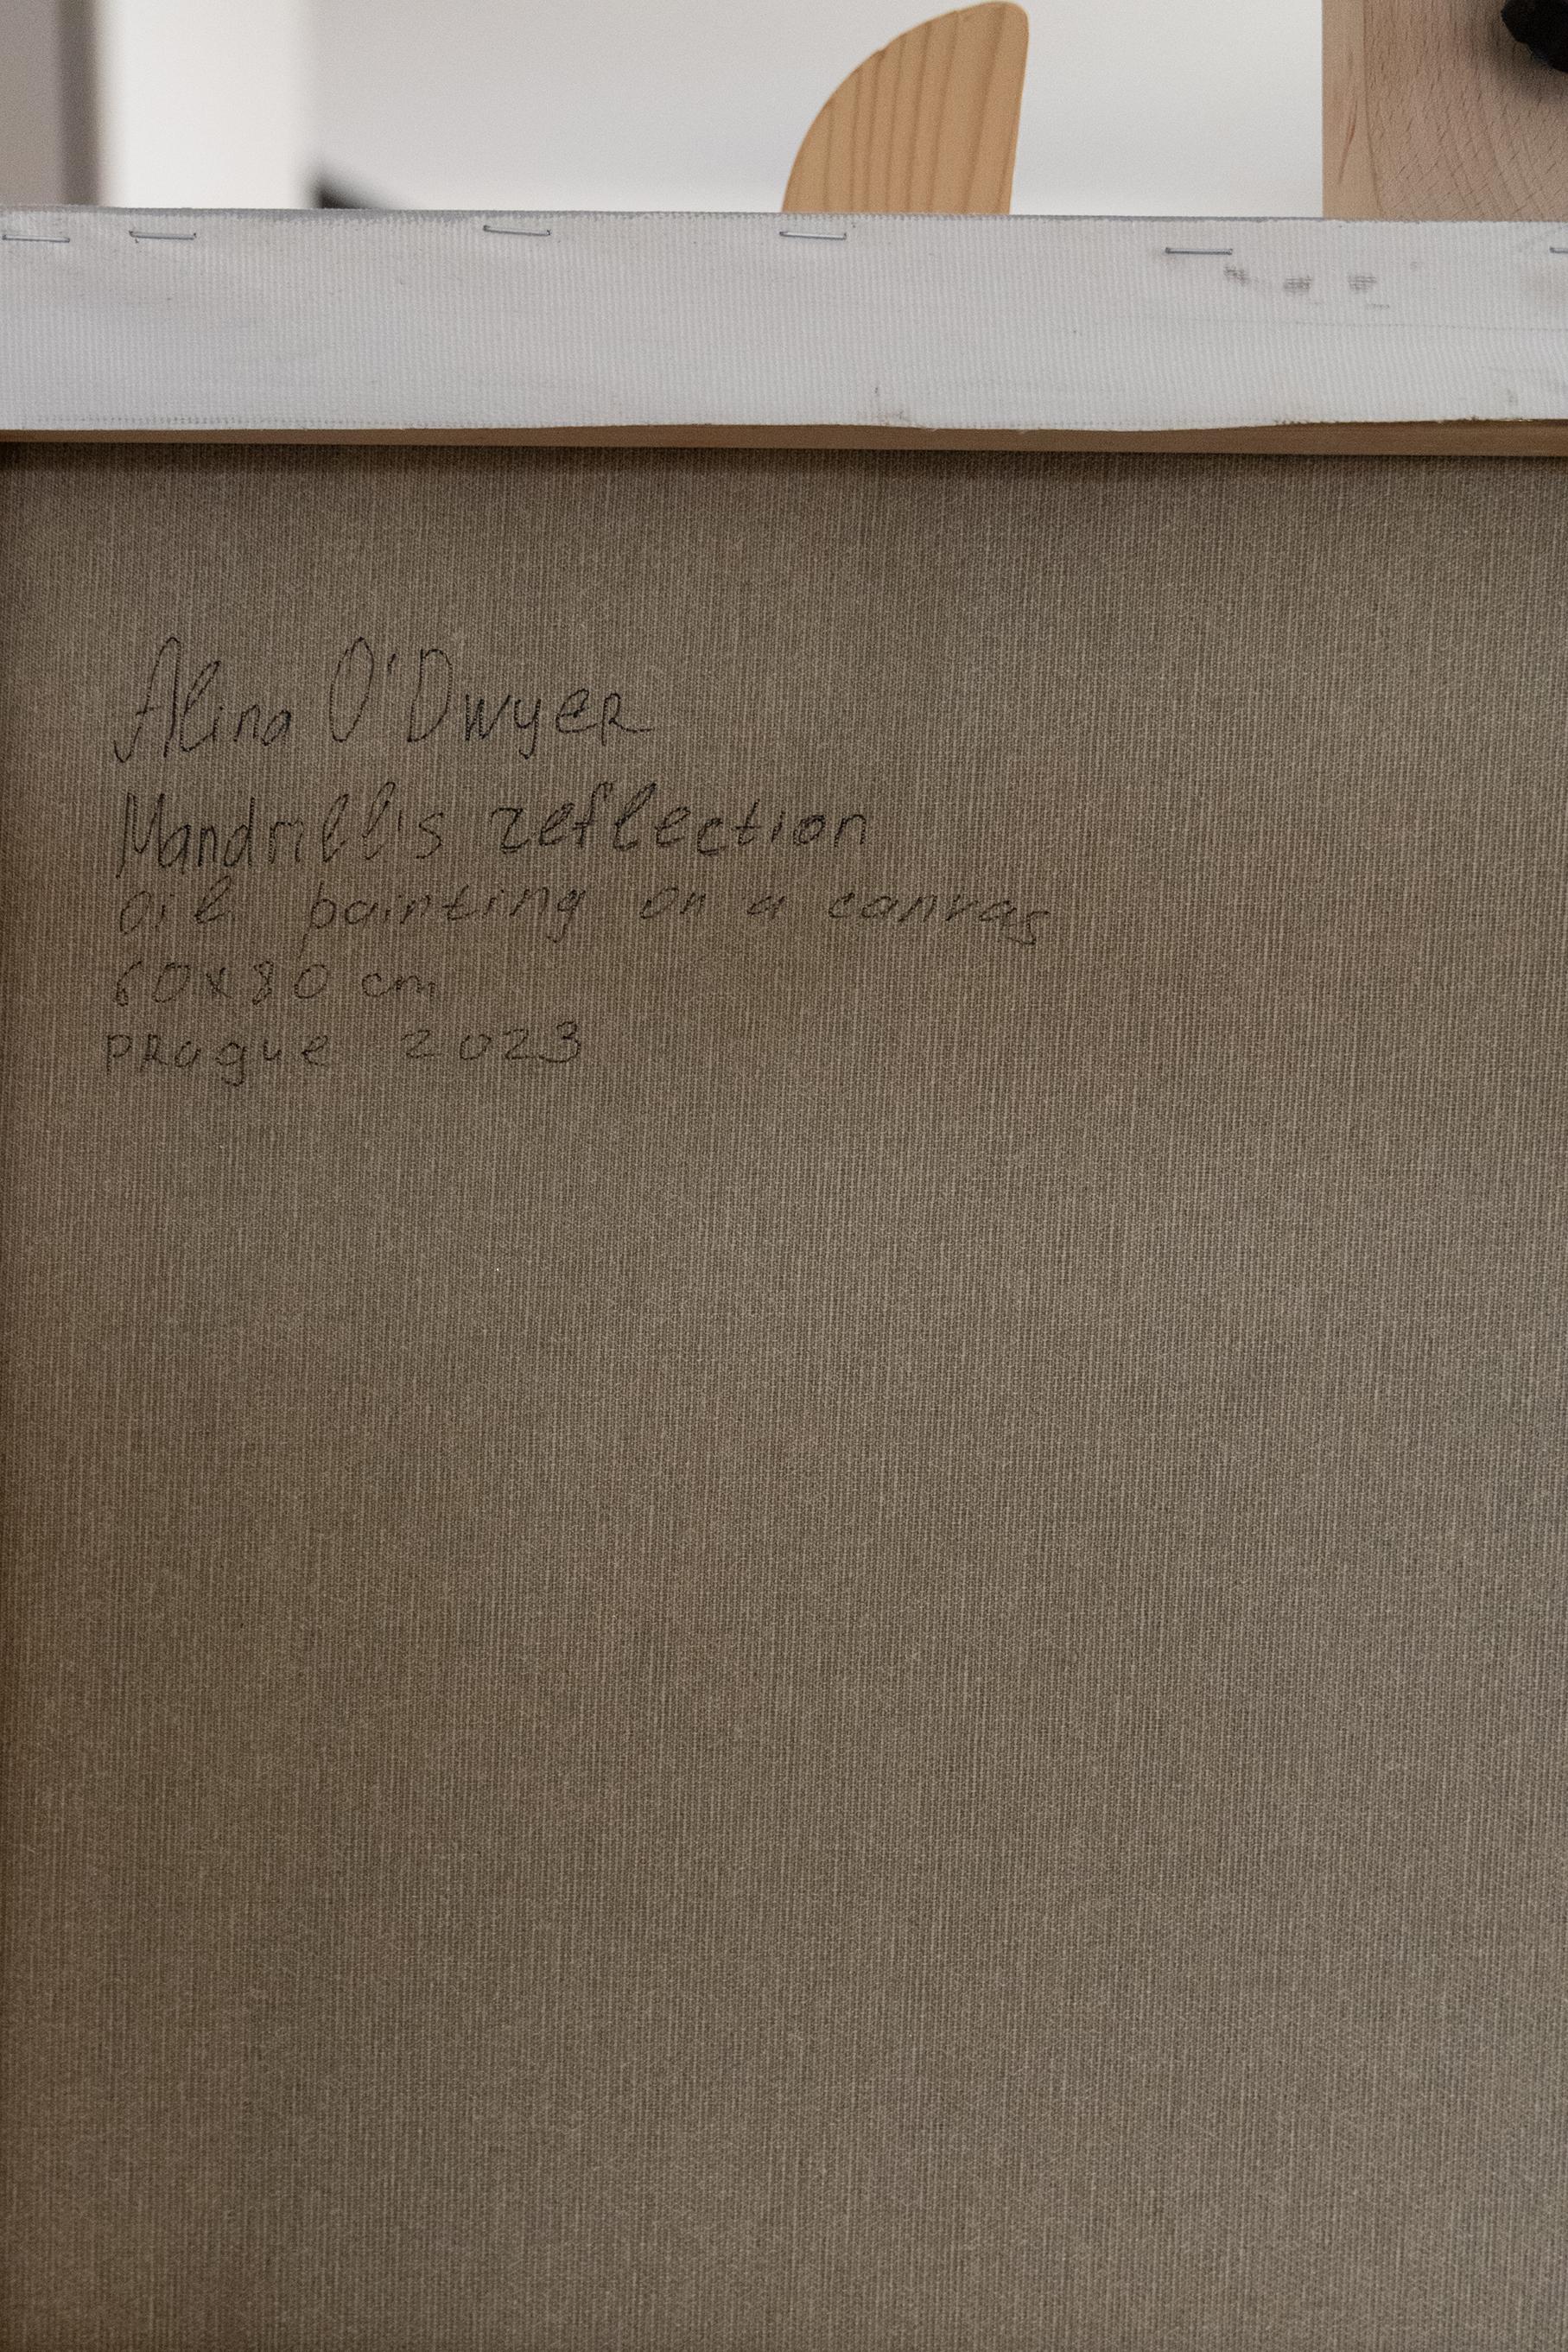 Alina O'Dwyer
Mandrill's reflection
Oil painting on a canvas
60x80 cm
Prague 2023